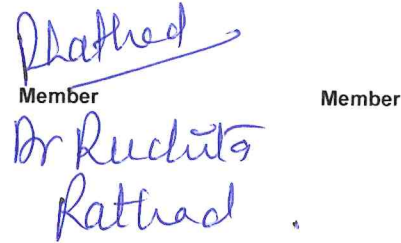 RRathod
Member Member
Dr Ruchita
Rathod